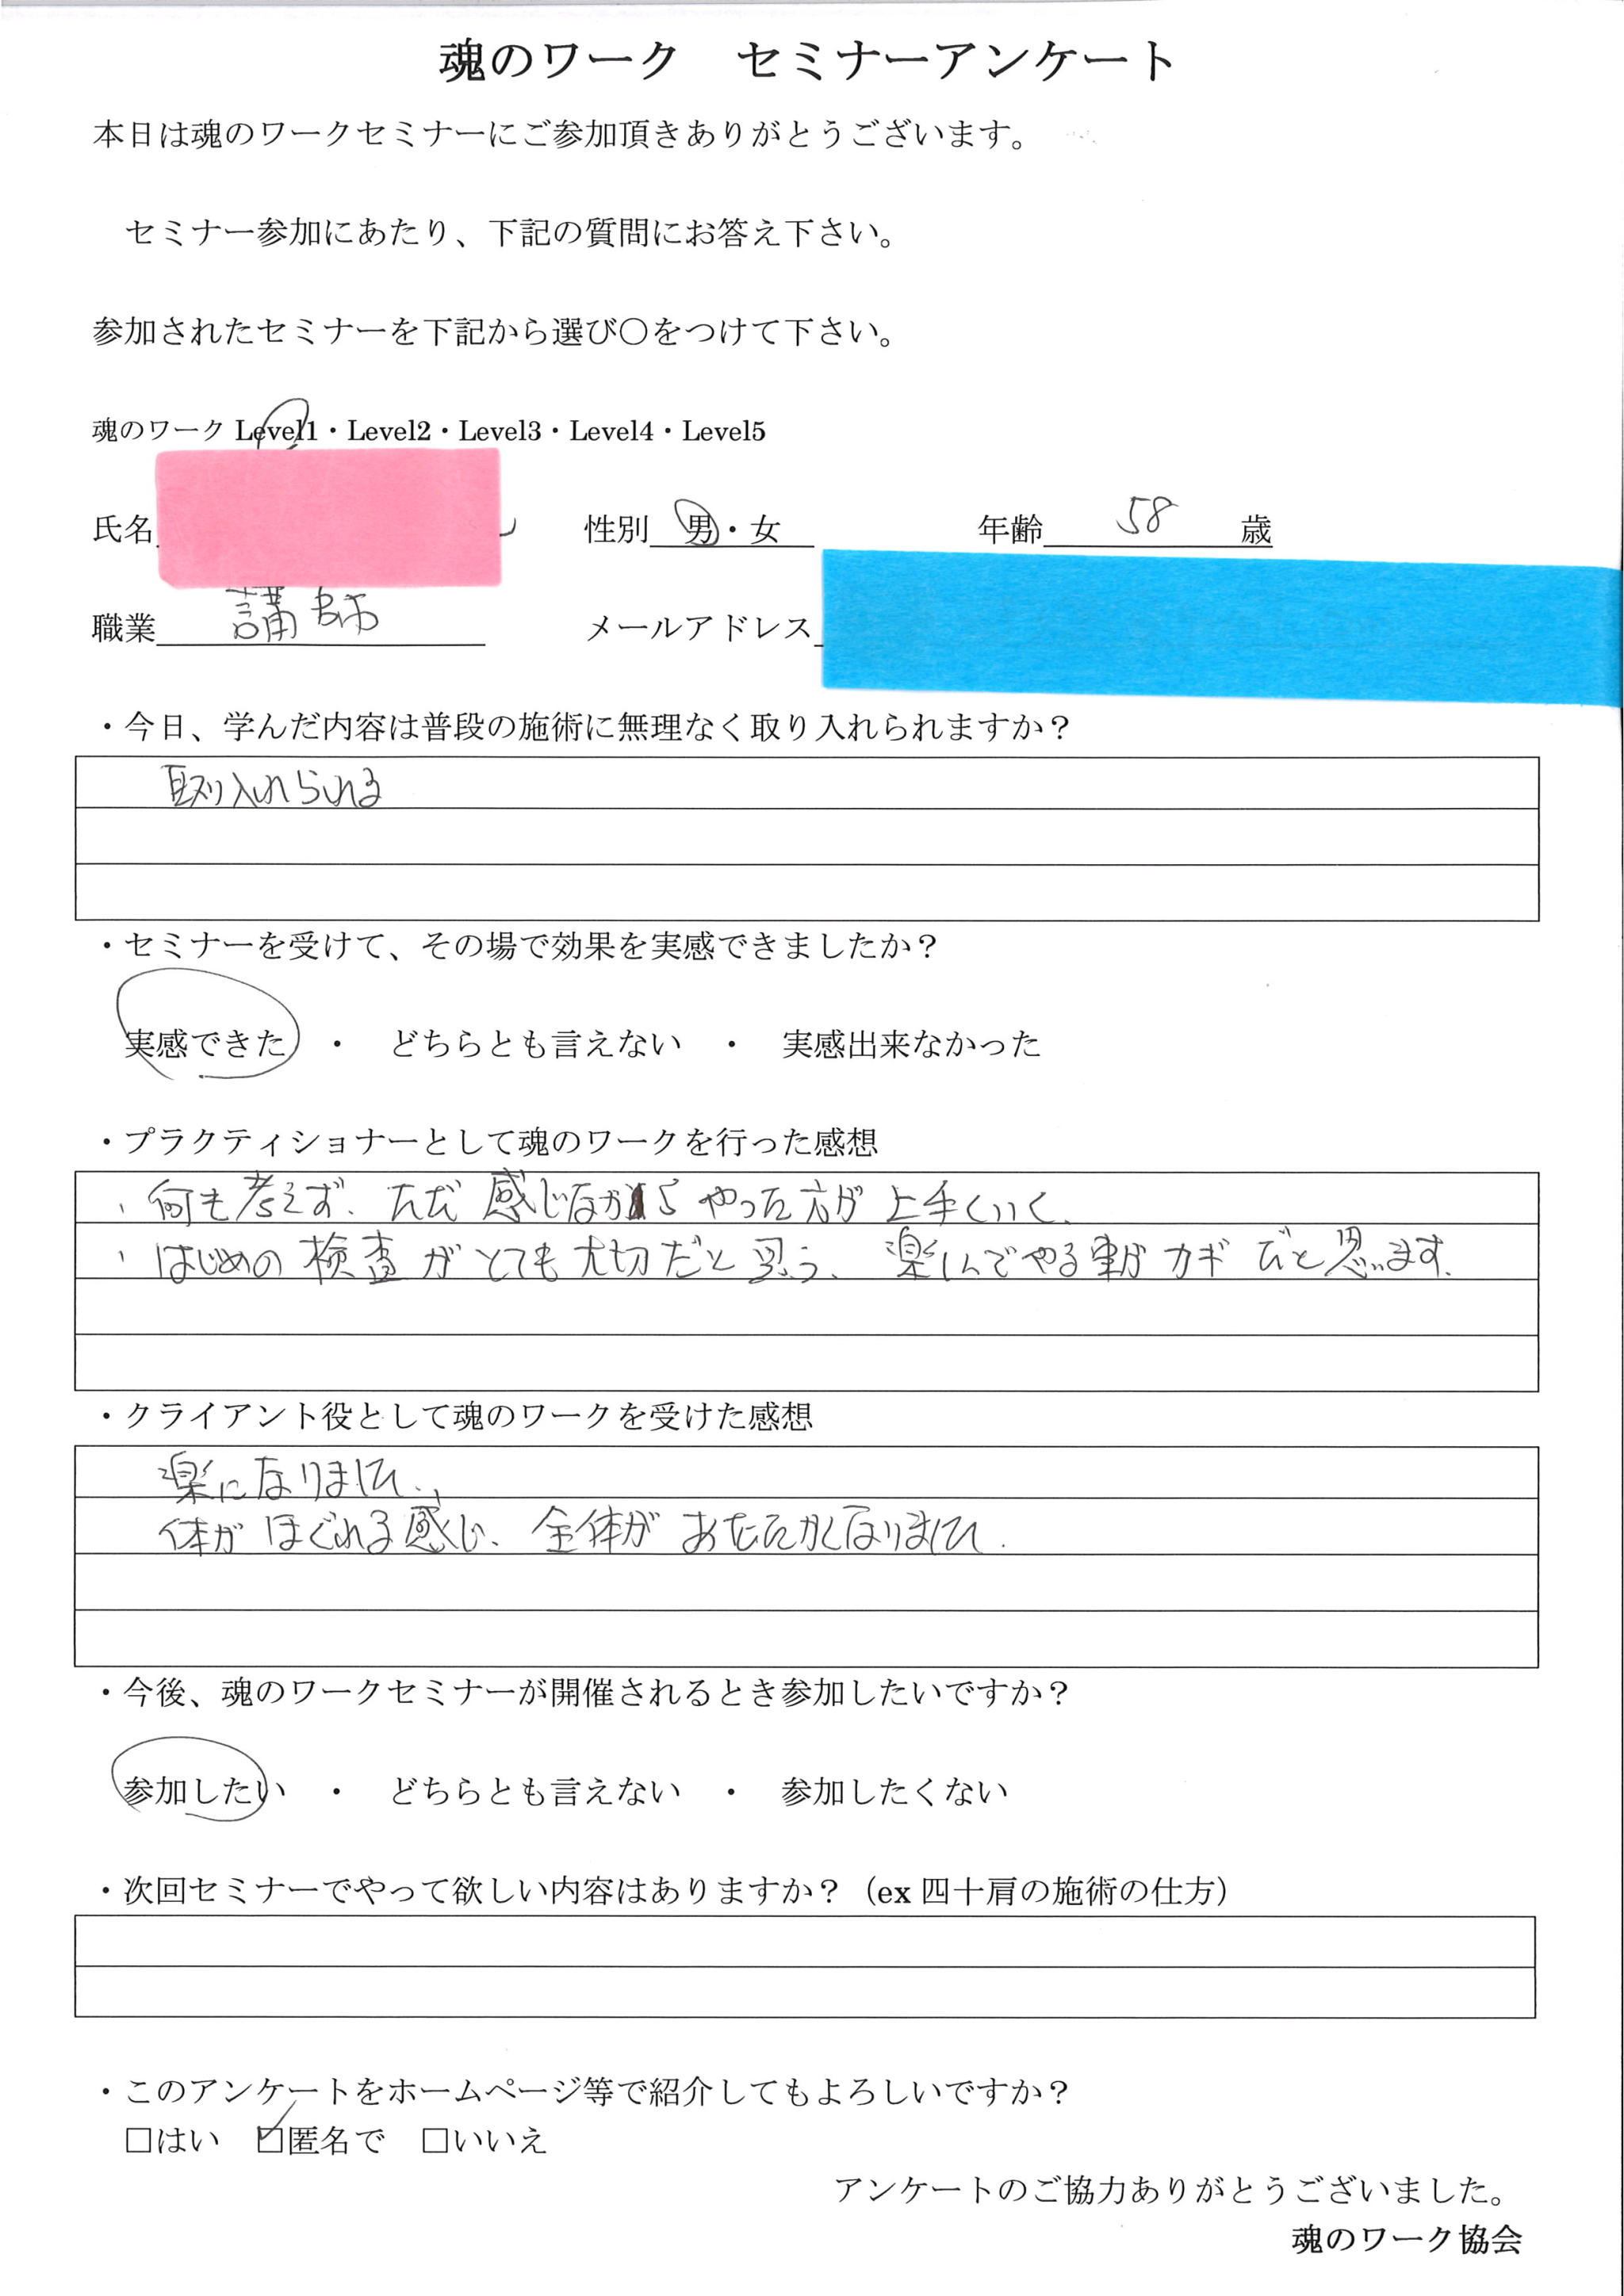 魂のワーク　セミナーアンケート
本日は魂のワークセミナーにご参加頂きありがとうございます。
セミナー参加にあたり、下記の質問にお答え下さい。
参加されたセミナーを下記から選び〇をつけて下さい。
魂のワーク Level1・Level2・Level3・Level4・Level5
氏名　性別　男・女　年齢　58　歳
職業　講師　メールアドレス
・今日、学んだ内容は普段の施術に無理なく取り入れられますか？
取り入れられる
・セミナーを受けて、その場で効果を実感できましたか？
実感できた　・　どちらとも言えない　・　実感出来なかった
・プラクティショナーとして魂のワークを行った感想
、何も考えず、ただ感じながらやった方が上手くいく、
、はじめの検査がとても大切だと思う、楽しんでやる事がカギだと思います。
・クライアント役として魂のワークを受けた感想
楽になりました、
体がほぐれる感じ、全体があたたかくなりました.
・今後、魂のワークセミナーが開催されるとき参加したいですか？
参加したい　・　どちらとも言えない　・　参加したくない
・次回セミナーでやって欲しい内容はありますか？（ex 四十肩の施術の仕方）
・このアンケートをホームページ等で紹介してもよろしいですか？
□はい　☑匿名で　□いいえ
アンケートのご協力ありがとうございました。
魂のワーク協会